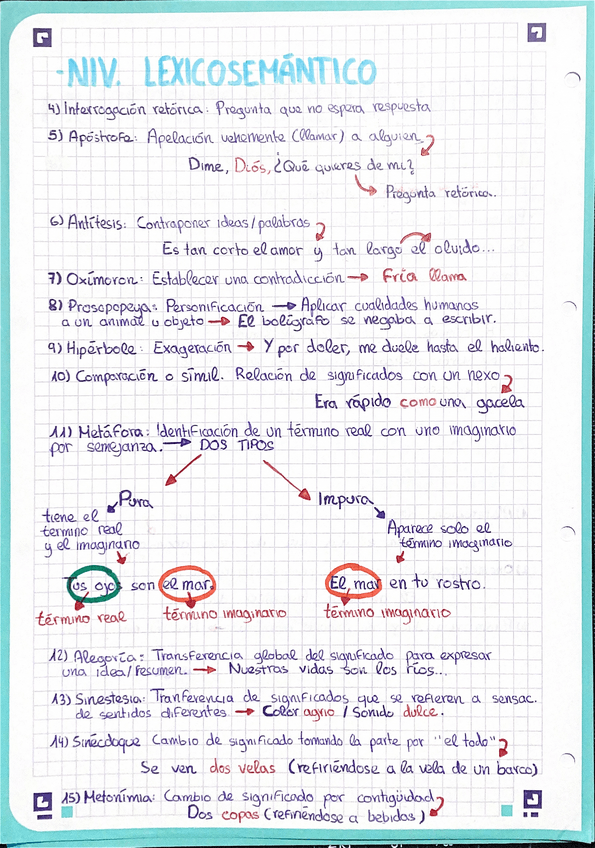 -NIV. LEXICOSEMÁNTICO
4) Interrogación retórica: Pregunta que no espera respuesta
5) Apóstrofe: Apelación vehemente (llamar) a alguien.
Dime, Diós, ¿Qué quieres de mi?
Pregunta retórica.
6) Antítesis: Contraponer ideas/palabras
Es tan corto el amor y tan largo el olvido...
7) Oxímoron: Establecer una contradicción → Fría llama
8) Prosopopeya: Personificación → Aplicar cualidades humanas
a un animal u objeto → El bolígrafo se negaba a escribir.
9) Hipérbole: Exageración → Y por doler, me duele hasta el haliento.
10) Comparación o símil. Relación de significados con un nexo
Era rápido como una gacela
11) Metáfora: Identificación de un término real con uno imaginario
por semejanza. → DOS TIPOS
Pura
Impura
tiene el
termino real
y el imaginario
Aparece solo el
término imaginario
Tus ojos son el mar.
El mar en tu rostro.
término real
término imaginario
término imaginario
12) Alegoría: Transferencia global del significado para expresar
una idea/resumen. → Nuestras vidas son los ríos...
13) Sinestesia: Tranferencia de significados que se refieren a sensac.
de sentidos diferentes → Color agrio / Sonido dulce.
14) Sinécdoque Cambio de significado tomando la parte por "el todo"
Se ven dos velas (refiriéndose a la vela de un barco)
15) Metonimia: Cambio de significado por contigüidad
Dos copas (refiriéndose a bebidas)